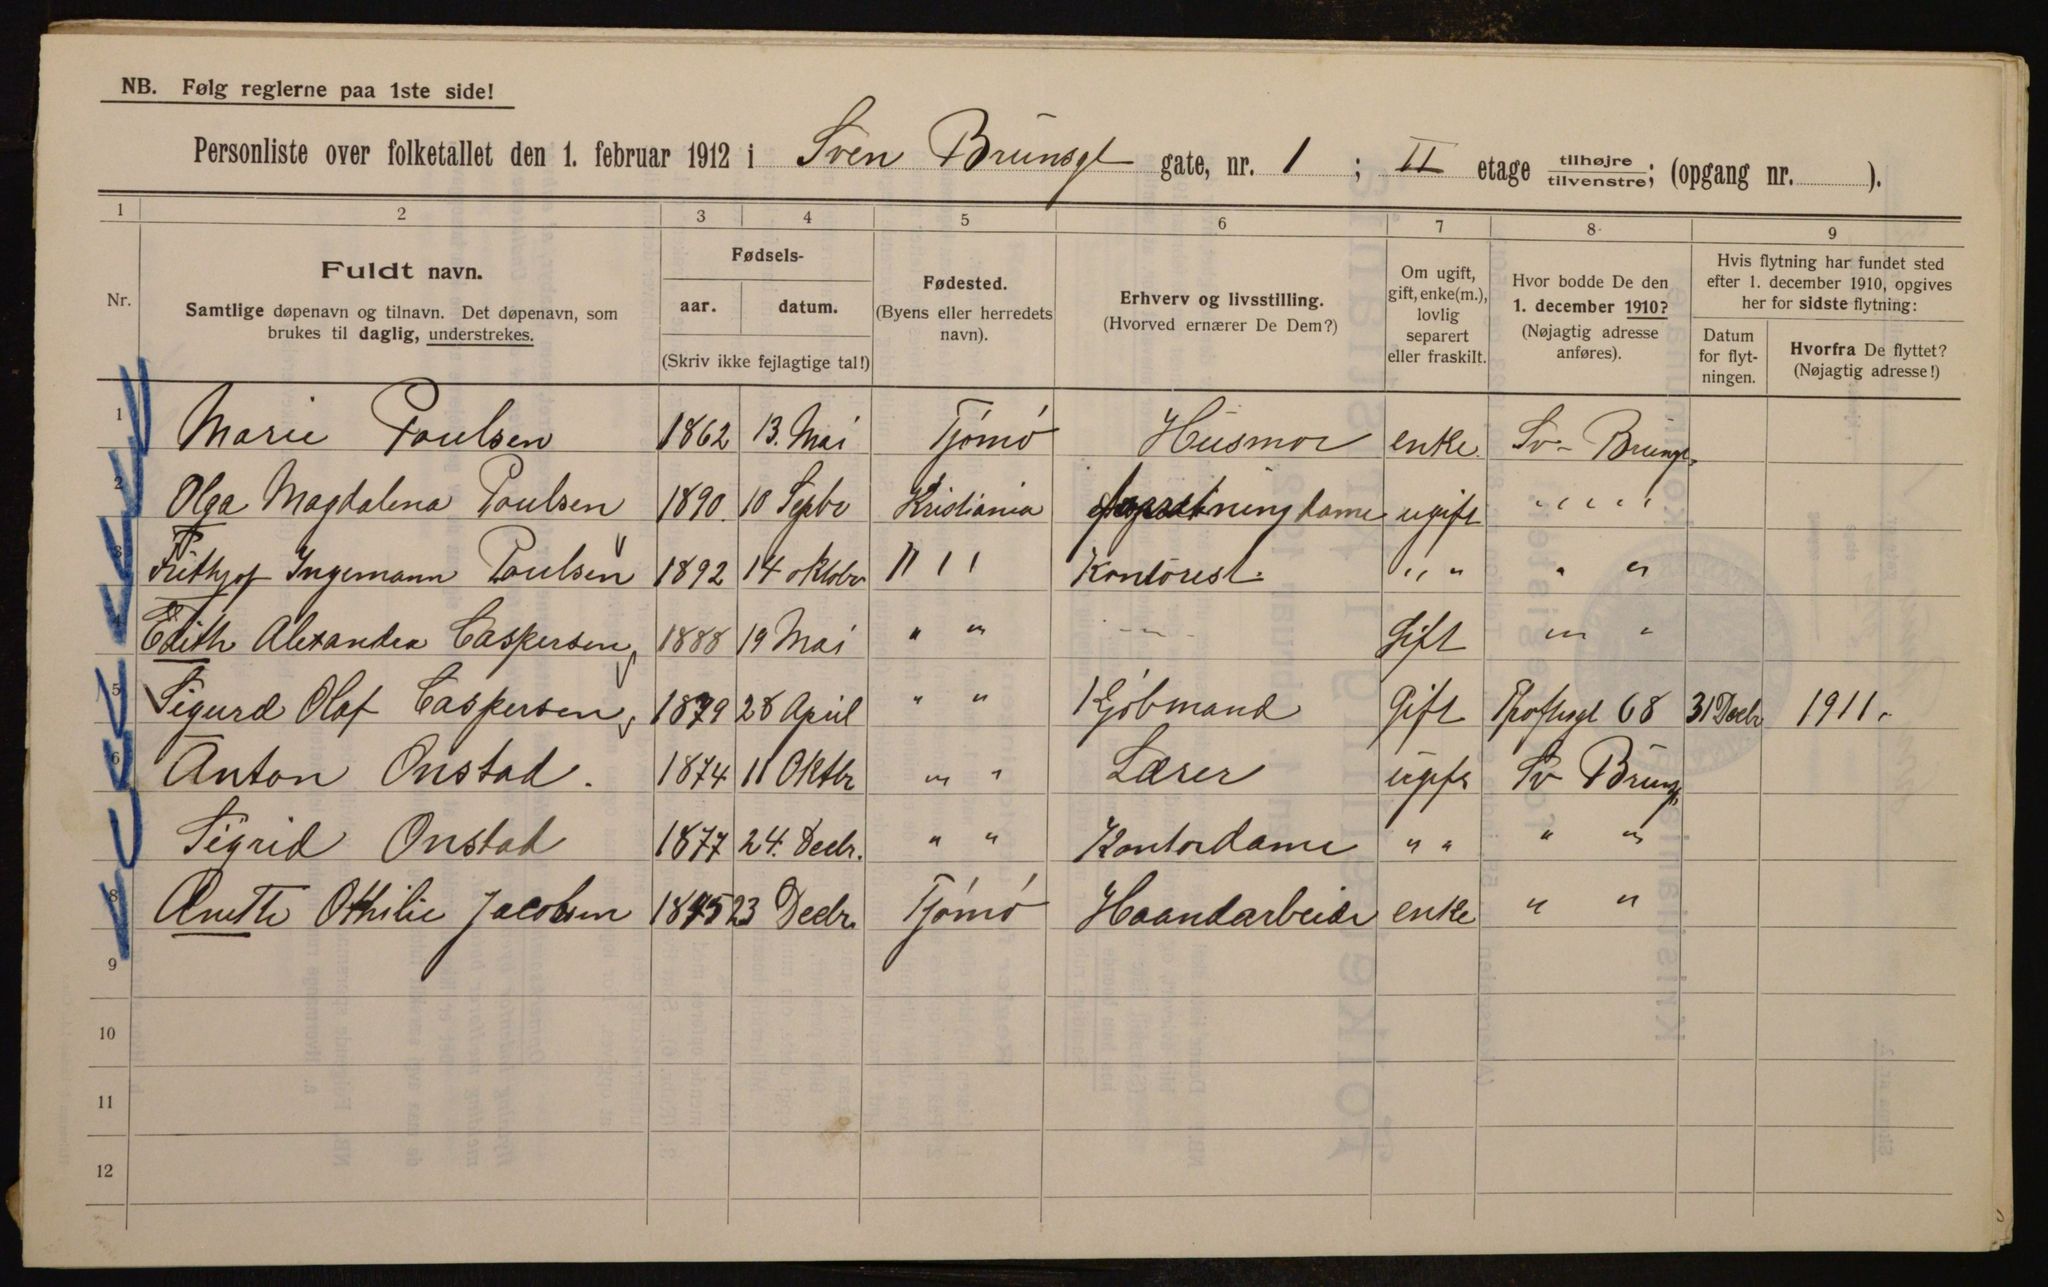 NB. Følg reglerne paa 1ste side!
Personliste over folketallet den 1. februar 1912 i Sven Brunsgt gate, nr. 1 ; II etage tilhøjre/tilvenstre; (opgang nr. ).
1 2 3 4 5 6 7 8 9
Nr.
Fuldt navn.
Samtlige døpenavn og tilnavn. Det døpenavn, som
brukes til daglig, understrekes.
Fødsels-
aar. datum.
(Skriv ikke fejlagtige tal!)
Fødested.
(Byens eller herredets
navn).
Erhverv og livsstilling.
(Hvorved ernærer De Dem?)
Om ugift,
gift, enke(m.),
lovlig
separert
eller fraskilt.
Hvor bodde De den
1. december 1910?
(Nøjagtig adresse
anføres).
Hvis flytning har fundet sted
efter 1. december 1910, opgives
her for sidste flytning:
Datum
for flyt-
ningen.
Hvorfra De flyttet?
(Nøjagtig adresse!)
1 Marie Poulsen 1862 13. Mai Tjømø Husmor enke. Sv- Brunsgt
2 Olga Magdalena Poulsen 1890. 10 Septbr Kristiania forretningdame ugift " " " "
3 Frithjof Ingemann Poulsen 1892 14 oktobr " " " Kontorist. " " " " "
4 Edith Alexandra Caspersen, 1888 19 Mai " " - - - Gift " "
5 Sigurd Olaf Caspersen, 1879 28 April " " Kjøbmand Gift 68 31 Decbr 1911.
6 Anton Onstad. 1874 11 Oktbr " " Lærer ugift Sv Brunsgt
Sigrid Onstad 1877 24. Decbr. " " Kontordame " " " "
8 Anette Othilie Jacobsen 1845 23 Decbr. Tjømø Haandarbeide enke " "
9
10
11
12